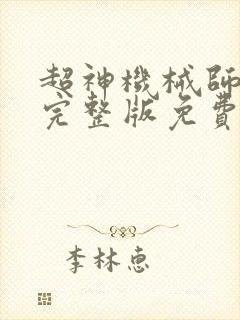 超神機械師
完整版免費
李林惠